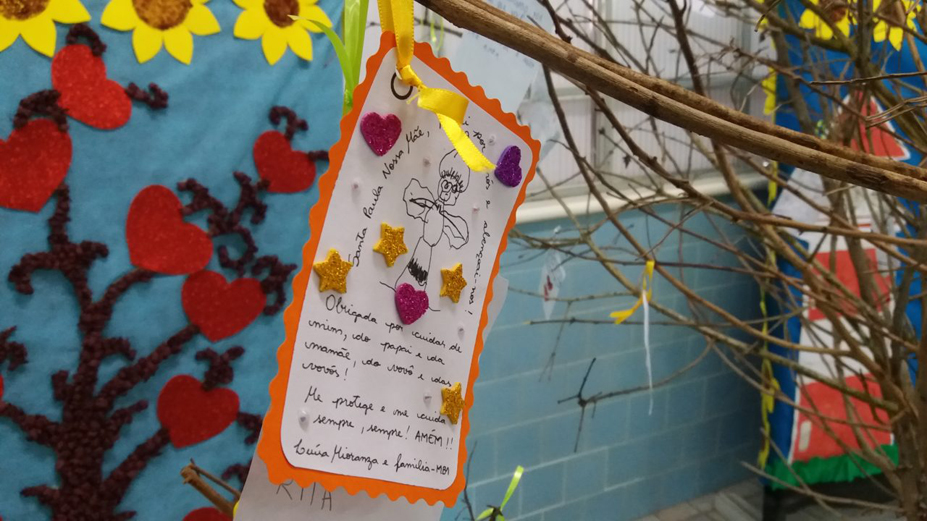 Santa Paula Nossa Mãe,
e abençoai-nos!
Obrigada por cuidar de
mim, do papai e da
mamãe, do vovô e das
vovós!
Me protege e me cuida
sempre, sempre! AMÉM!!
Luísa Mioranza e família-MBA
RITA